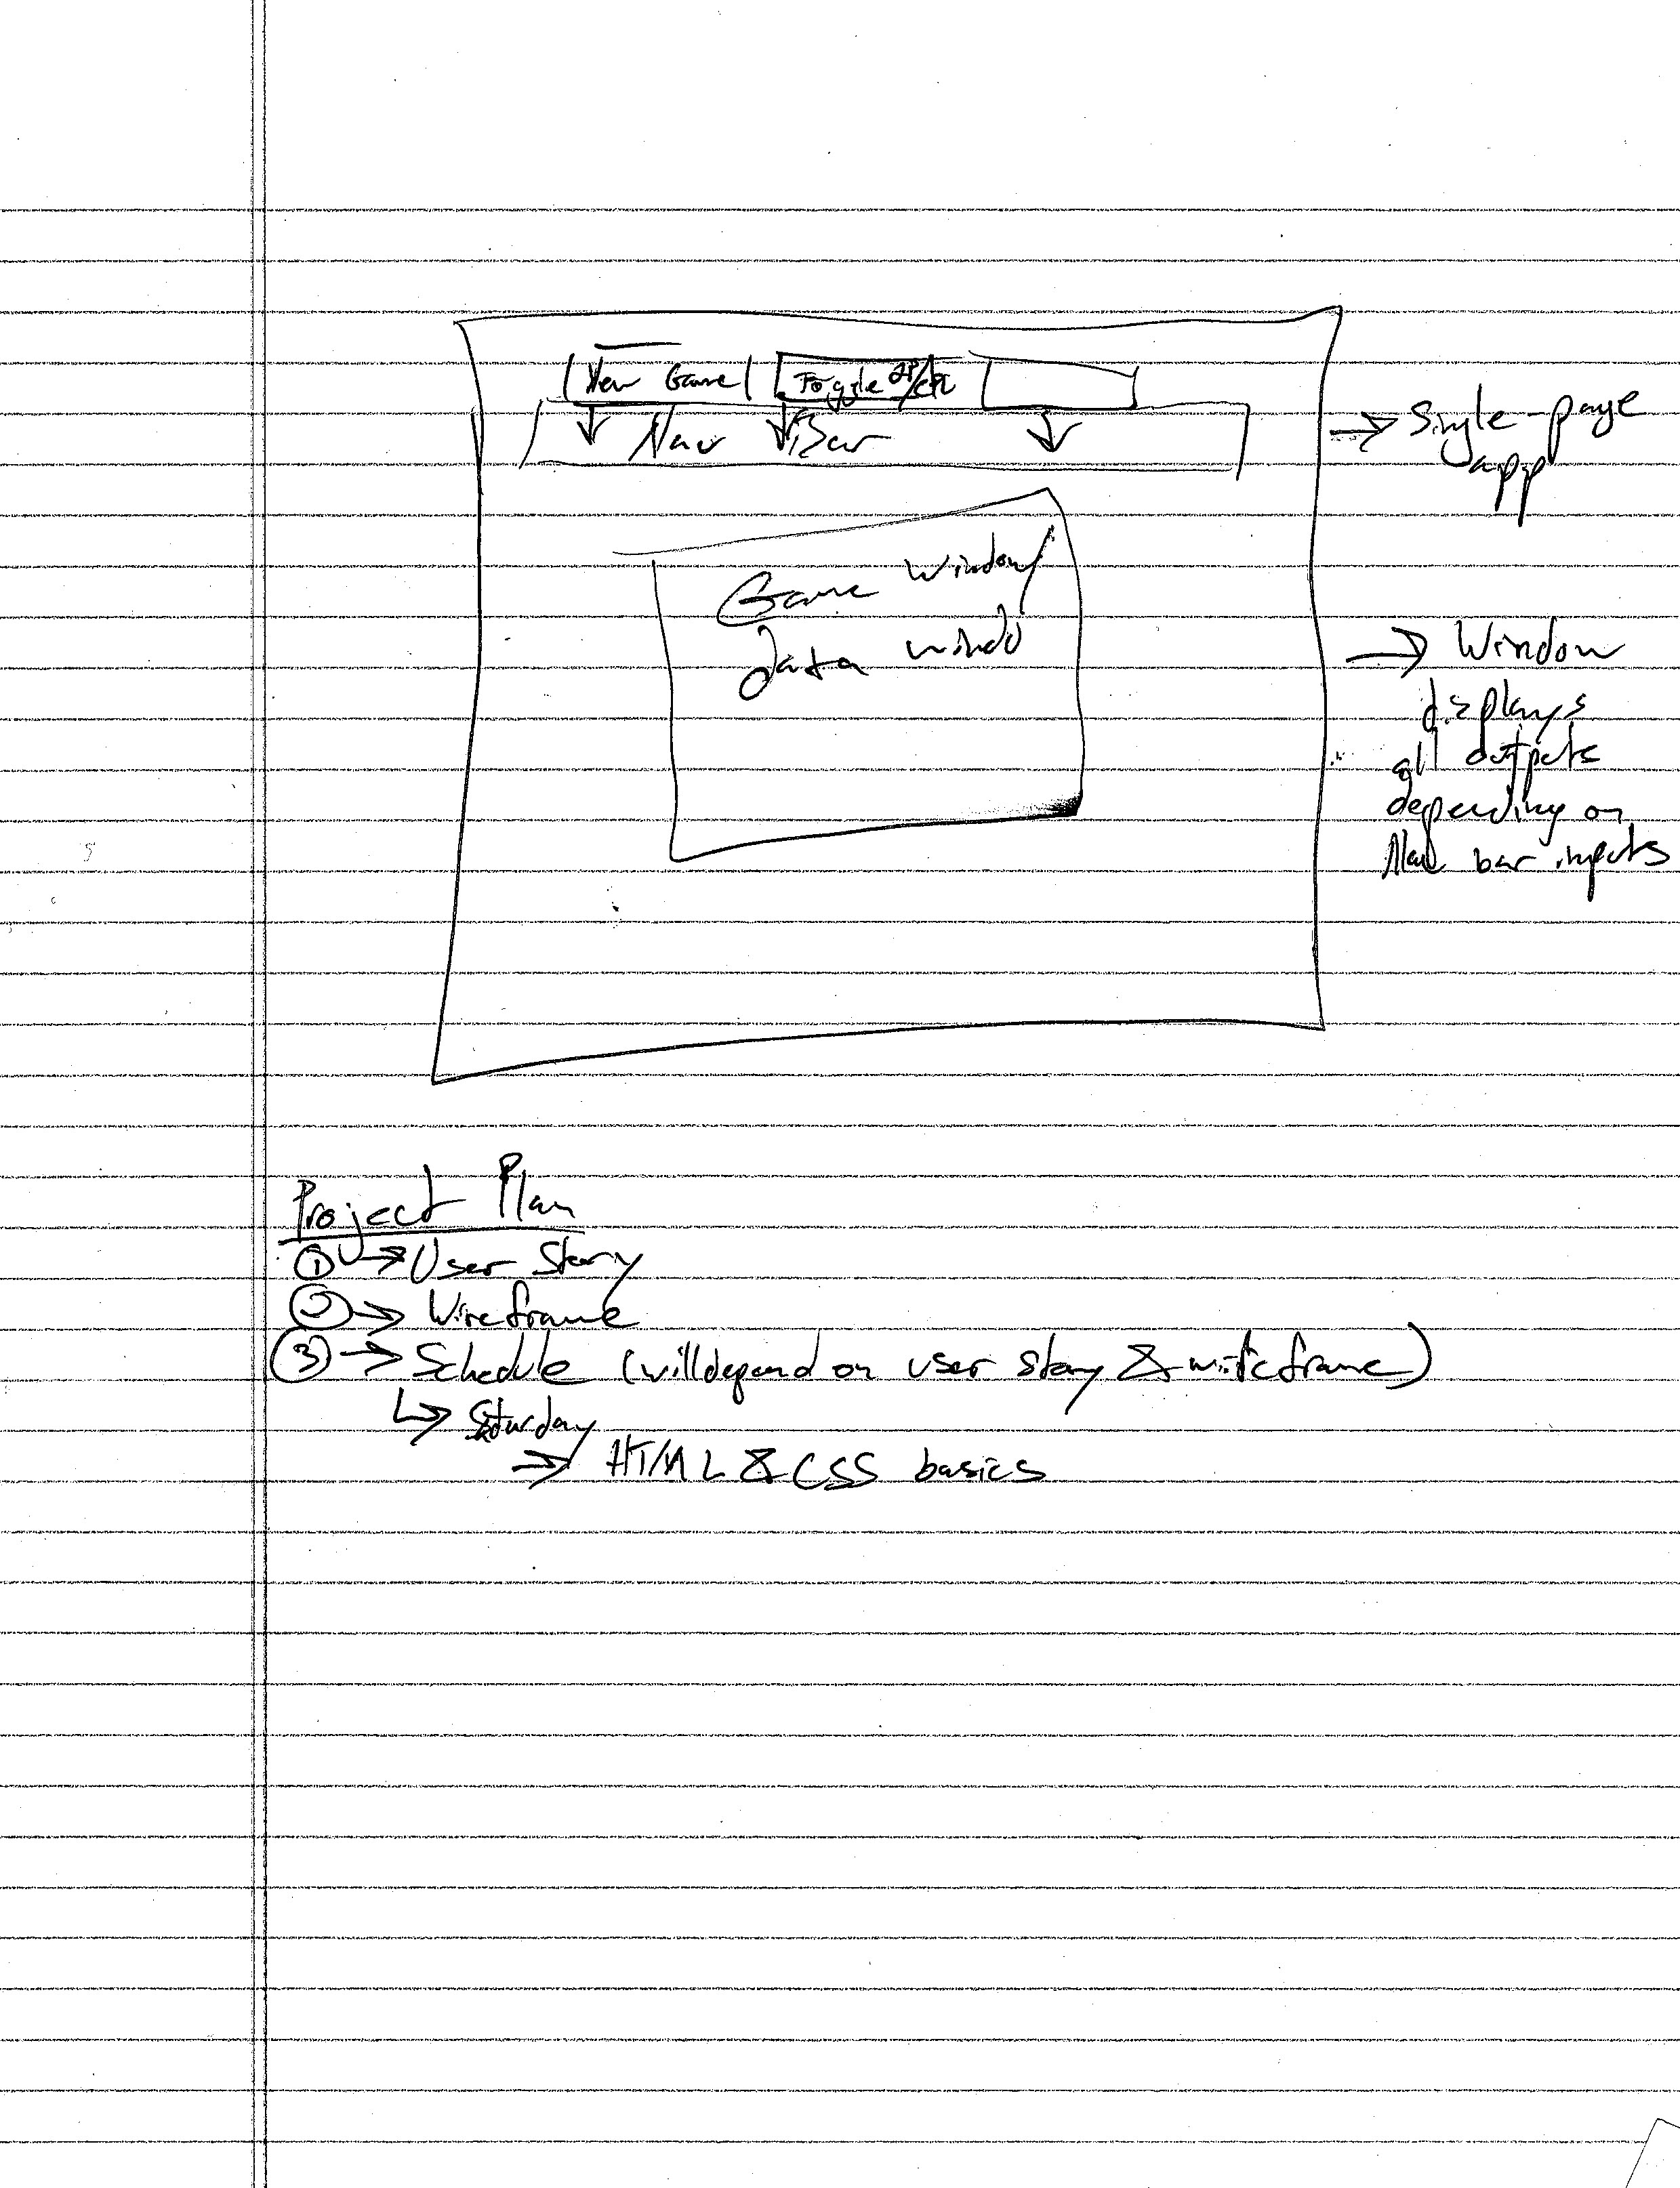 New Game Toggle 2P/
Nav Bar
→ Single-page
app
Game Window/
data windo
→ Window
displays
all outputs
depending on
Nav bar inputs
Project Plan
① → User Story
② → Wireframe
③ → Schedule (will depend on user story & wireframe)
↳ Saturday
→ HTML & CSS basics